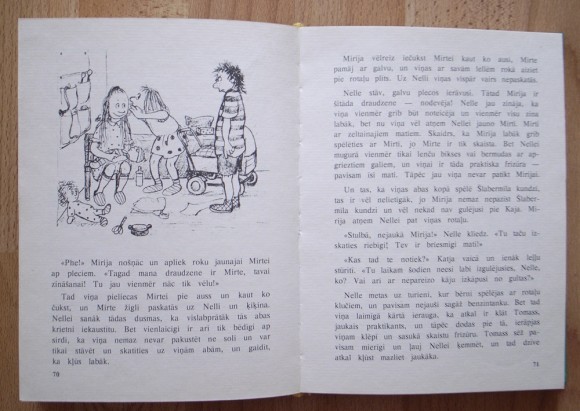 «Phe!» Mirija nošņāc un apliek roku jaunajai Mirtei
ap pleciem. «Tagad mana draudzene ir Mirte, tavai
zināšanai! Tu jau vienmēr nāc tik vēlu!»
Tad viņa pieliecas Mirtei pie auss un kaut ko
čukst, un Mirte žigli paskatās uz Nelli un ķiķina.
Nellei sanāk tādas dusmas, ka vislabprātāk tās abas
krietni iekaustītu. Bet vienlaicīgi ir arī tik bēdīgi ap
sirdi, ka viņa nemaz nevar pakustēt ne soli un var
tikai stāvēt un skatīties uz viņām abām, un gaidīt,
ka kļūs labāk.
70
Mirija vēlreiz iečukst Mirtei kaut ko ausī, Mirte
pamāj ar galvu, un viņas ar savām lellēm rokā aiziet
pie rotaļu plīts. Uz Nelli viņas vispār vairs nepaskatās.
Nelle stāv, galvu plecos ierāvusi. Tātad Mirija ir
šitāda draudzene — nodevēja! Nelle jau zināja, ka
viņa vienmēr grib būt noteicēja un vienmēr visu zina
labāk, bet nu viņa vēl atņem Nellei jauno Mirti. Mirti
ar zeltainajiem matiem. Skaidrs, ka Mirija labāk grib
spēlēties ar Mirti, jo Mirte ir tik skaista. Bet Nellei
mugurā vienmēr tikai lenču bikses vai bermudas ar ap-
grieztiem galiem, un viņai ir tāda praktiska frizūra —
pavisam īsi mati. Tāpēc jau viņa nevar patikt Mirijai.
Un tas, ka viņas abas kopā spēlē Šlabermīla kundzi,
tas ir vēl nelietīgāk, jo Mirija nemaz nepazīst Šlaber-
mīla kundzi un vēl nekad nav gulējusi pie Kaja. Mirija
atņem Nellei pat viņas rotaļu.
«Stulbā, nejaukā Mirija!» Nelle kliedz. «Tu taču iz-
skaties riebīgi! Tev ir bēteсmīgi mati!»
«Kas tad te notiek?» Katja vaicā un ienāk leļļu
stūrītī. «Tu laikam šodien neesi labi izgulējusies, Nelle,
ko? Vai arī ar nepareizo kāju izkāpusi no gultas?»
Nelle metas uz turieni, kur bērni spēlējas ar rotaļu
klučiem, un pavisam nejauši sagāž benzīntanku. Bet tad
viņa laimīgā kārtā ierauga, ka atkal ir klāt Tomass,
jaukais praktikants, un tāpēc dodas pie tā, ierāpjas
viņam klēpī un sasukā skaistu frizūru. Tomass sēž pa-
visam mierīgi un ļauj Nellei ķemmēt, un tad daive
atkal kļūst mazliet jaukāka.
71